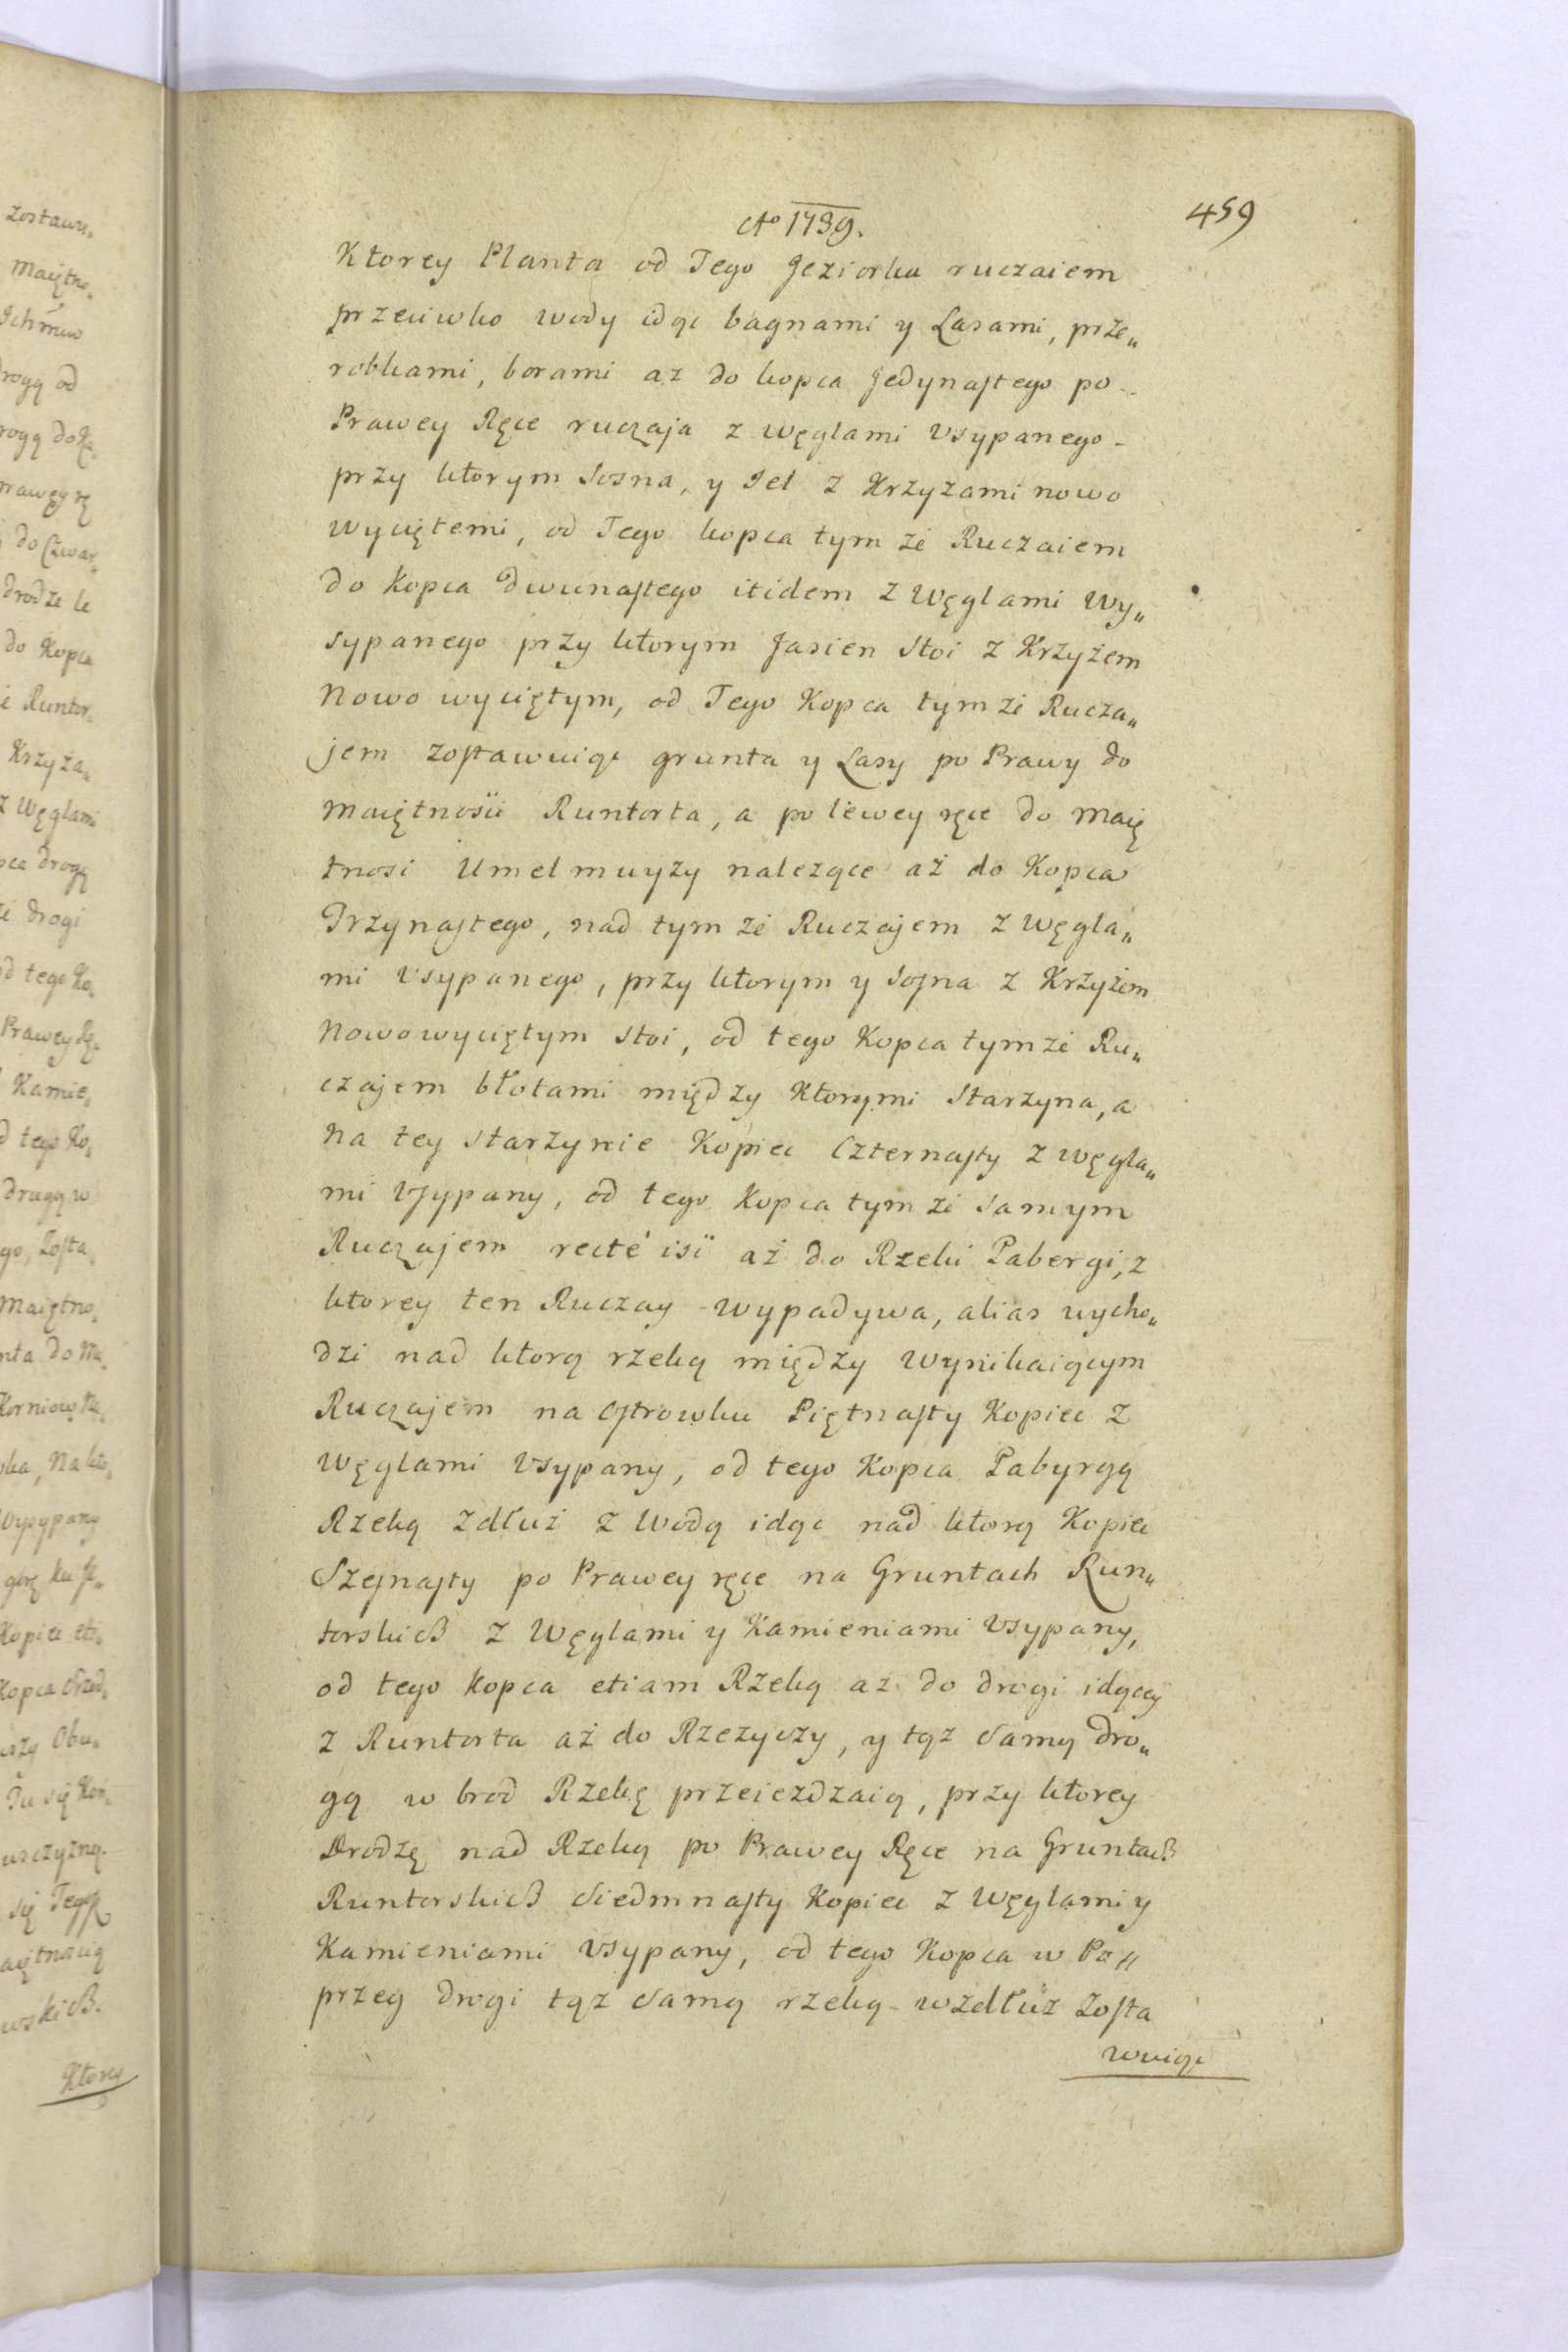 zostawu„
Maiętno„
Ichmw
rogą od
do Czwar„
drodze le
do Kopca
Krzyża„
Z Węglami
drogi
od tego Ko„
Kamie„
d tego Ko„
drugą w
Maiętno„
Kopiec eti„
Ktorey
459
Ao 1739.
Ktorey Planta od Tego Jeziorka ruczaiem
przeciwko wody idąc bagnami y Lasami, prze„
robkami, borami az do kopca Jedynastego po
Prawey Ręce ruczaja z węglami Vsypanego
przy ktorym Sosna, y Jel z Krzyzami nowo
wyciętemi, od Tego kopca tym że Ruczaiem
do Kopca dwunastego itidem z Węglami Wy„
sypanego przy ktorym Jasien Stoi z Krzyżem
Nowo wyciętym, od Tego Kopca tym że Rucza„
jem zostawuiąc grunta y Lasy po Prawy do
Maiętności Runtorta, a po lewey ręce do Maię
tnosi Umelmuyzy nalezące aż do Kopca
Trzynastego, nad tym że Ruczajem z węgla„
mi Vsypanego, przy ktorym y Sosna z Krzyżem
Nowowyciętym Stoi, od tego Kopca tym że Ru„
czajem błotami między Ktorymi Starzyna, a
Na tey Starzynie Kopiec Czternasty z węgla„
mi Vsypany, od tego Kopca tym że Samym
Ruczajem recté iść aż do Rzeki Pabergi, z
ktorey ten Ruczay wypadywa, alias wycho„
dzi nad ktorą rzeką między wynikaiącym
Ruczajem na Ostrowku Piętnasty Kopiec z
Węglami Vsypany, od tego Kopca Pabyrgą
Rzeką Zdłuż z Wodą idąc nad ktorą Kopiec
Szesnasty po Prawey ręce na Gruntach Run„
torskich z Węglami y Kamieniami Vsypany,
od tego kopca etiam Rzeką aż do drogi idący
z Runtorta aż do Rzezyczy, y tąz Samą dro„
gą w brod Rzekę przeiezdzaią, przy ktorey
Drodzę nad Rzeką po Prawey Ręce na Gruntach
Runtorskich Siedmnasty Kopiec z Węglami y
Kamieniami Vsypany, od tego Kopca w Po„
przeg drogi tąz Samą rzeką wzdłuż Zosta
wuiąc